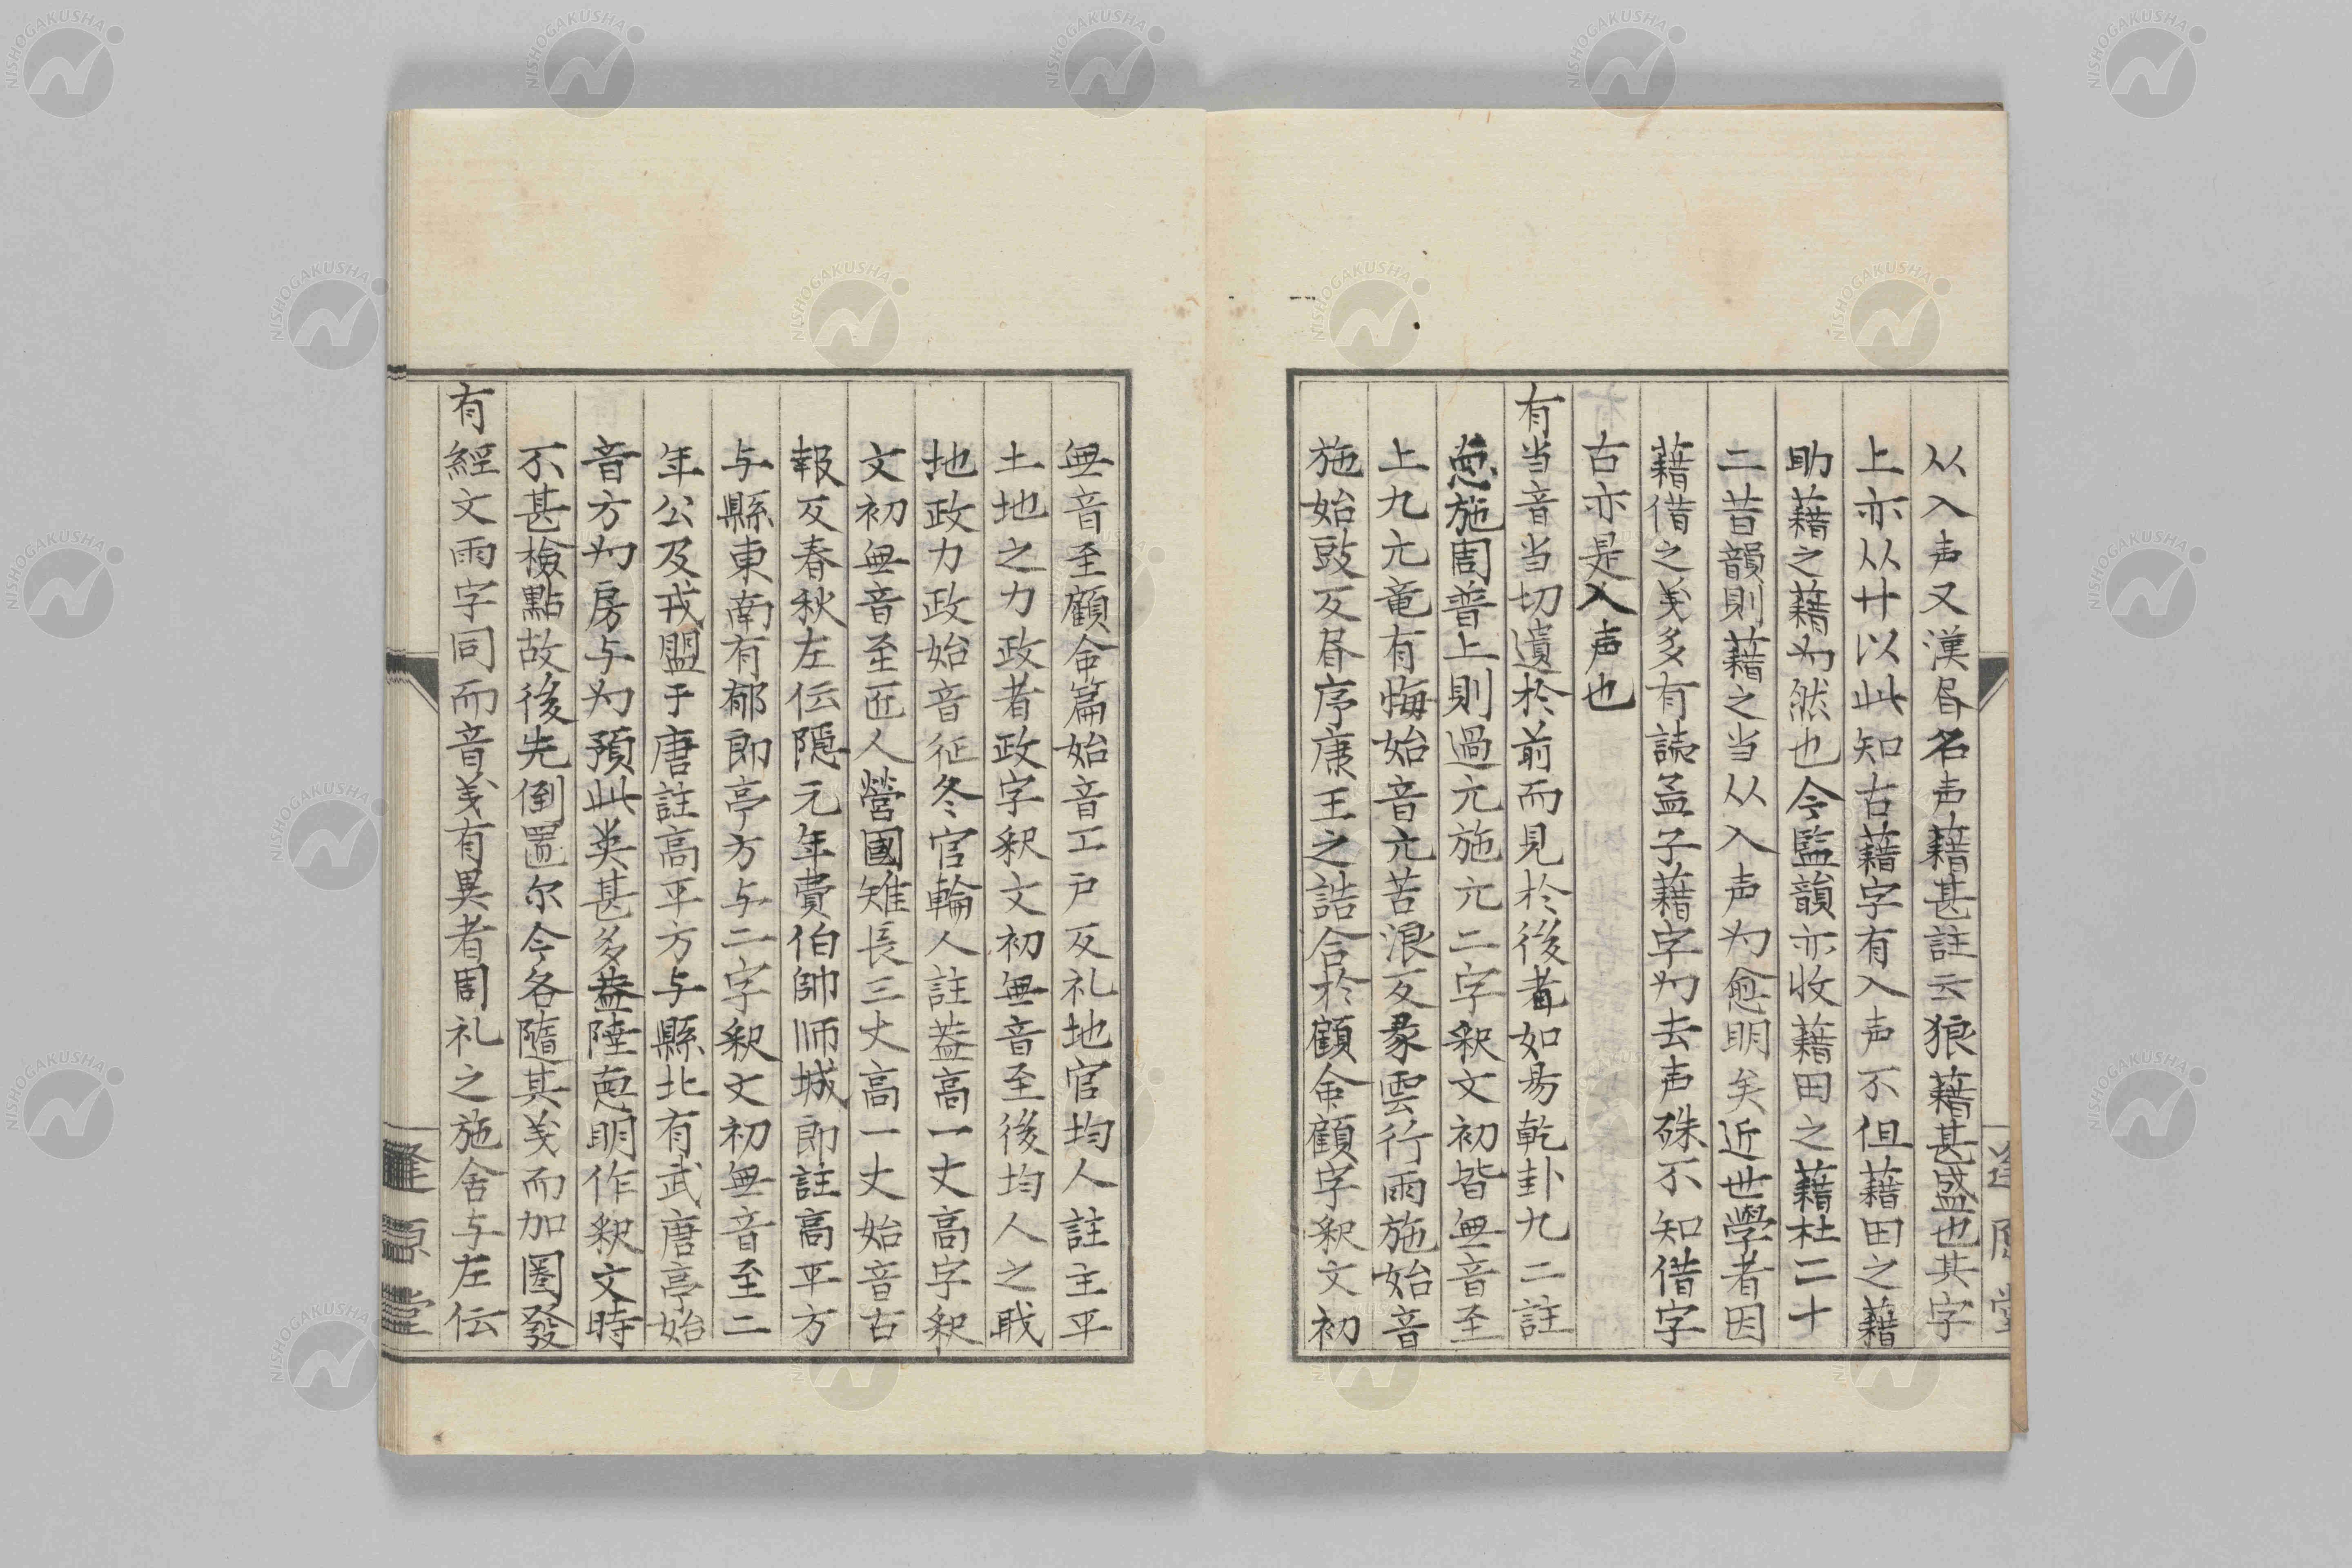 从入声又漢㫺名声藉甚註云狼藉甚盛也其字
上亦从廾以此知古藉字有入声不但藉田之藉
助藉之藉为然也今監韻亦收藉田之藉杜二十
二昔韻則藉之当从入声为愈明矣近世學者因
藉借之義多有読孟子藉字为去声殊不知借字
古亦是入声也
有当音当切遺於前而見於後者如易乾卦九二註
徳施周普上則過亢施亢二字釈文初皆無音至
上九亢竜有悔始音亢苦浪反彖雲行雨施始音
施始豉反㫺序康王之誥合於顧命顧字釈文初
無音至顧命篇始音工戸反礼地官均人註主平
土地之力政者政字釈文初無音至後均人之職
地政力政始音征冬官輪人註蓋高一丈高字釈
文初無音至匠人營國雉長三丈高一丈始音古
報反春秋左伝隠元年費伯帥师城郎註高平方
与縣東南有郁郎亭方与二字釈文初無音至二
年公及戎盟于唐註高平方与縣北有武唐亭始
音方为房与为預此类甚多蓋陸徳明作釈文時
不甚検點故後先倒置尔今各隨其義而加圏發
有經文両字同而音義有異者周礼之施舍与左伝
逢原堂
NISHOGAKUSHA